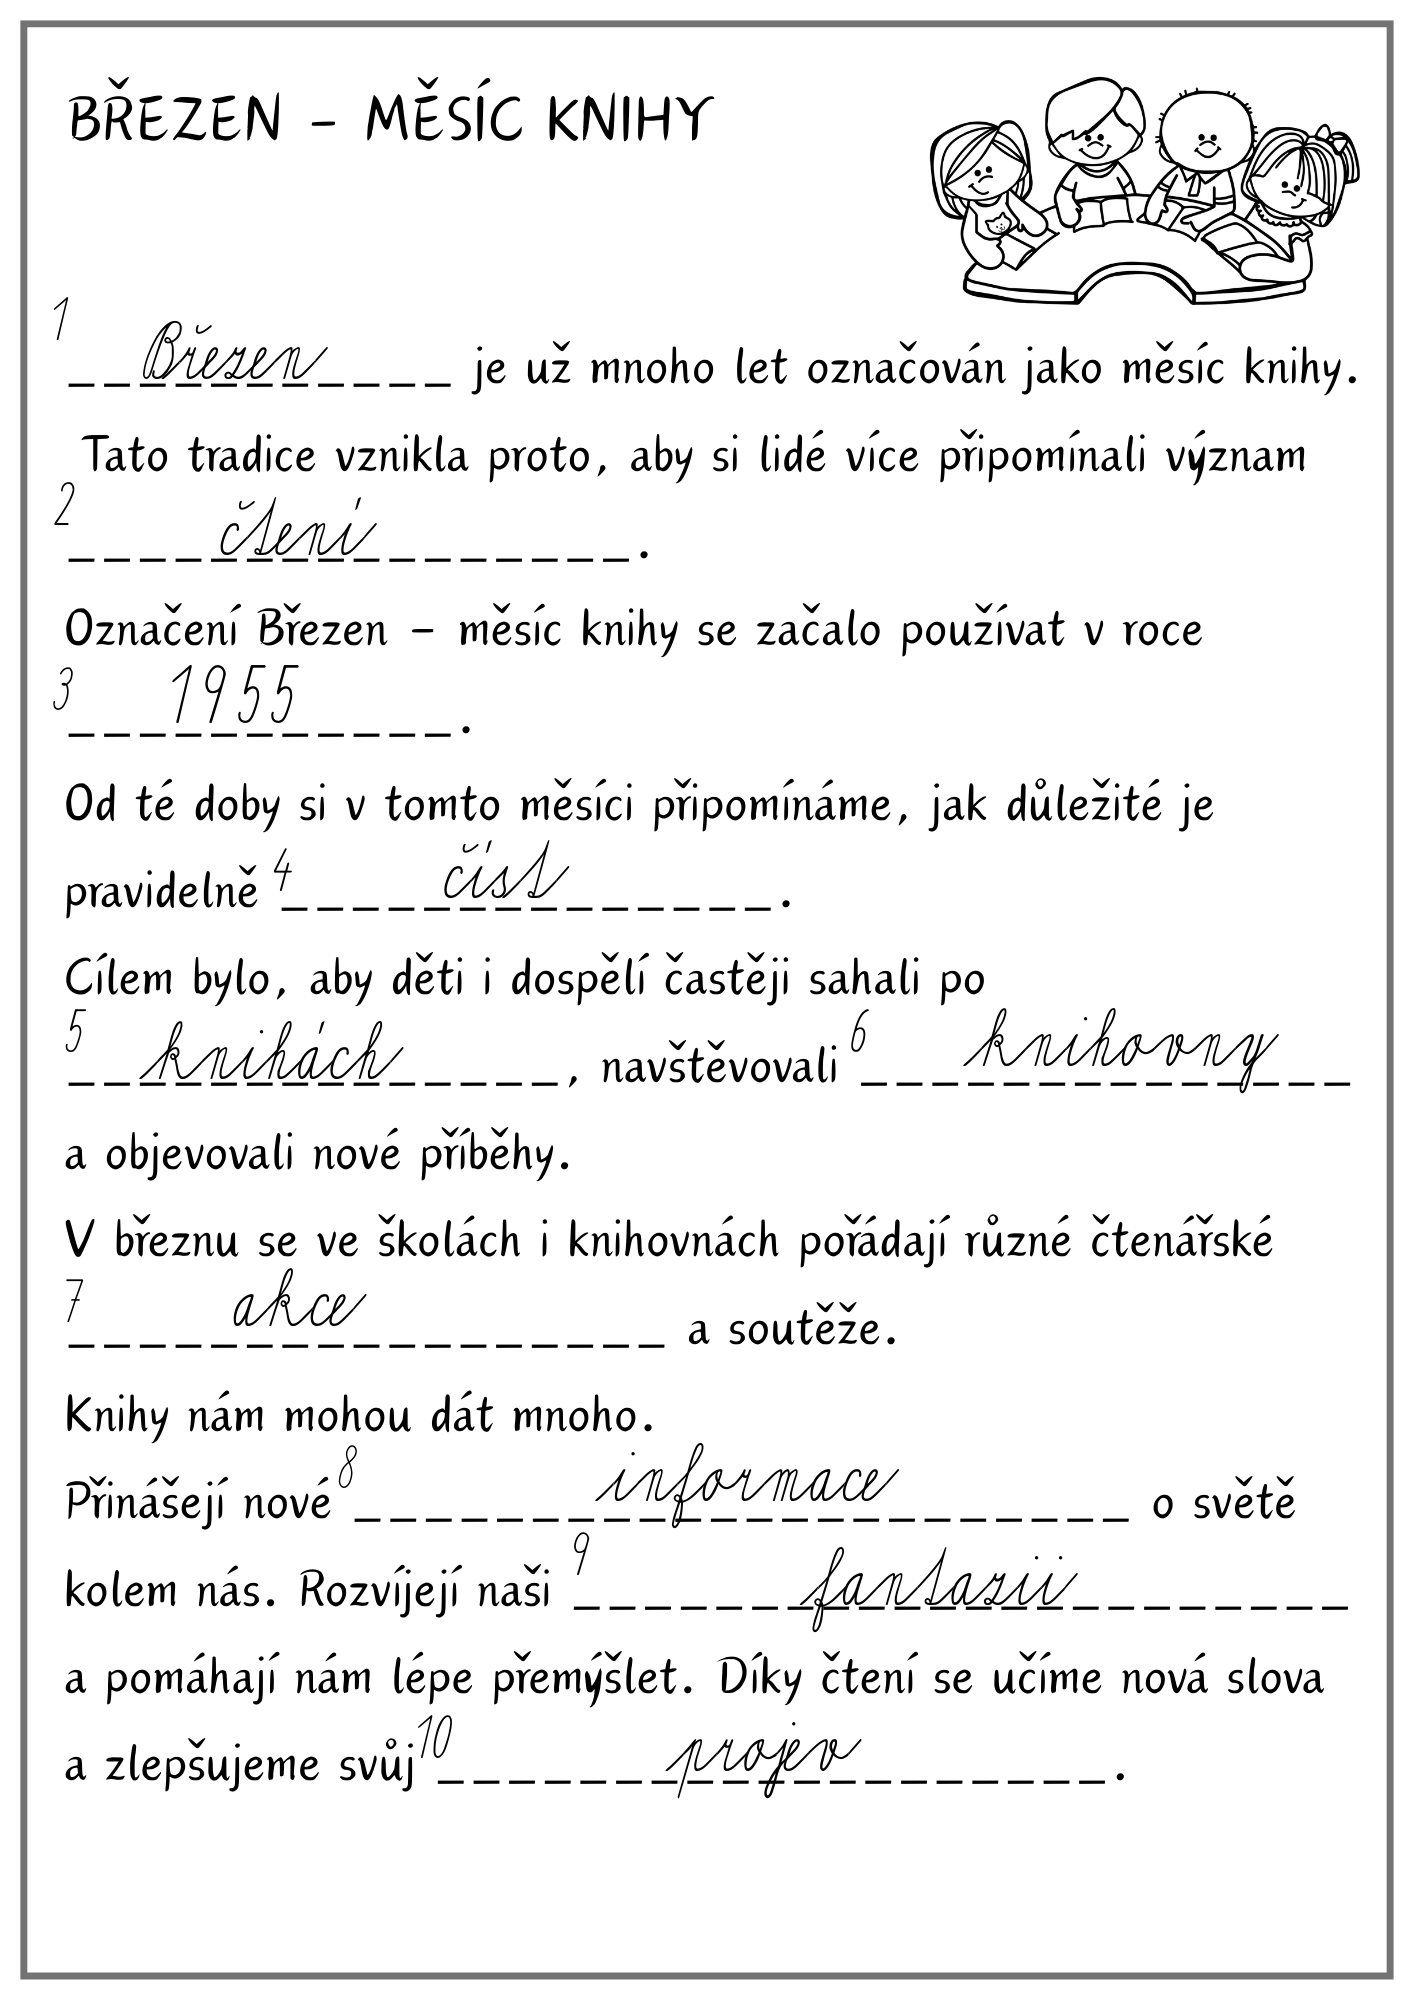 BŘEZEN - MĚSÍC KNIHY
1 Březen je už mnoho let označován jako měsíc knihy.
Tato tradice vznikla proto, aby si lidé více připomínali význam
2 čtení.
Označení Březen - měsíc knihy se začalo používat v roce
3 1955.
Od té doby si v tomto měsíci připomínáme, jak důležité je
pravidelně 4 číst.
Cílem bylo, aby děti i dospělí častěji sahali po
5 knihách, navštěvovali 6 knihovny
a objevovali nové příběhy.
V březnu se ve školách i knihovnách pořádají různé čtenářské
7 akce a soutěže.
Knihy nám mohou dát mnoho.
Přinášejí nové 8 informace o světě
kolem nás. Rozvíjejí naši 9 fantazii
a pomáhají nám lépe přemýšlet. Díky čtení se učíme nová slova
a zlepšujeme svůj 10 projev.